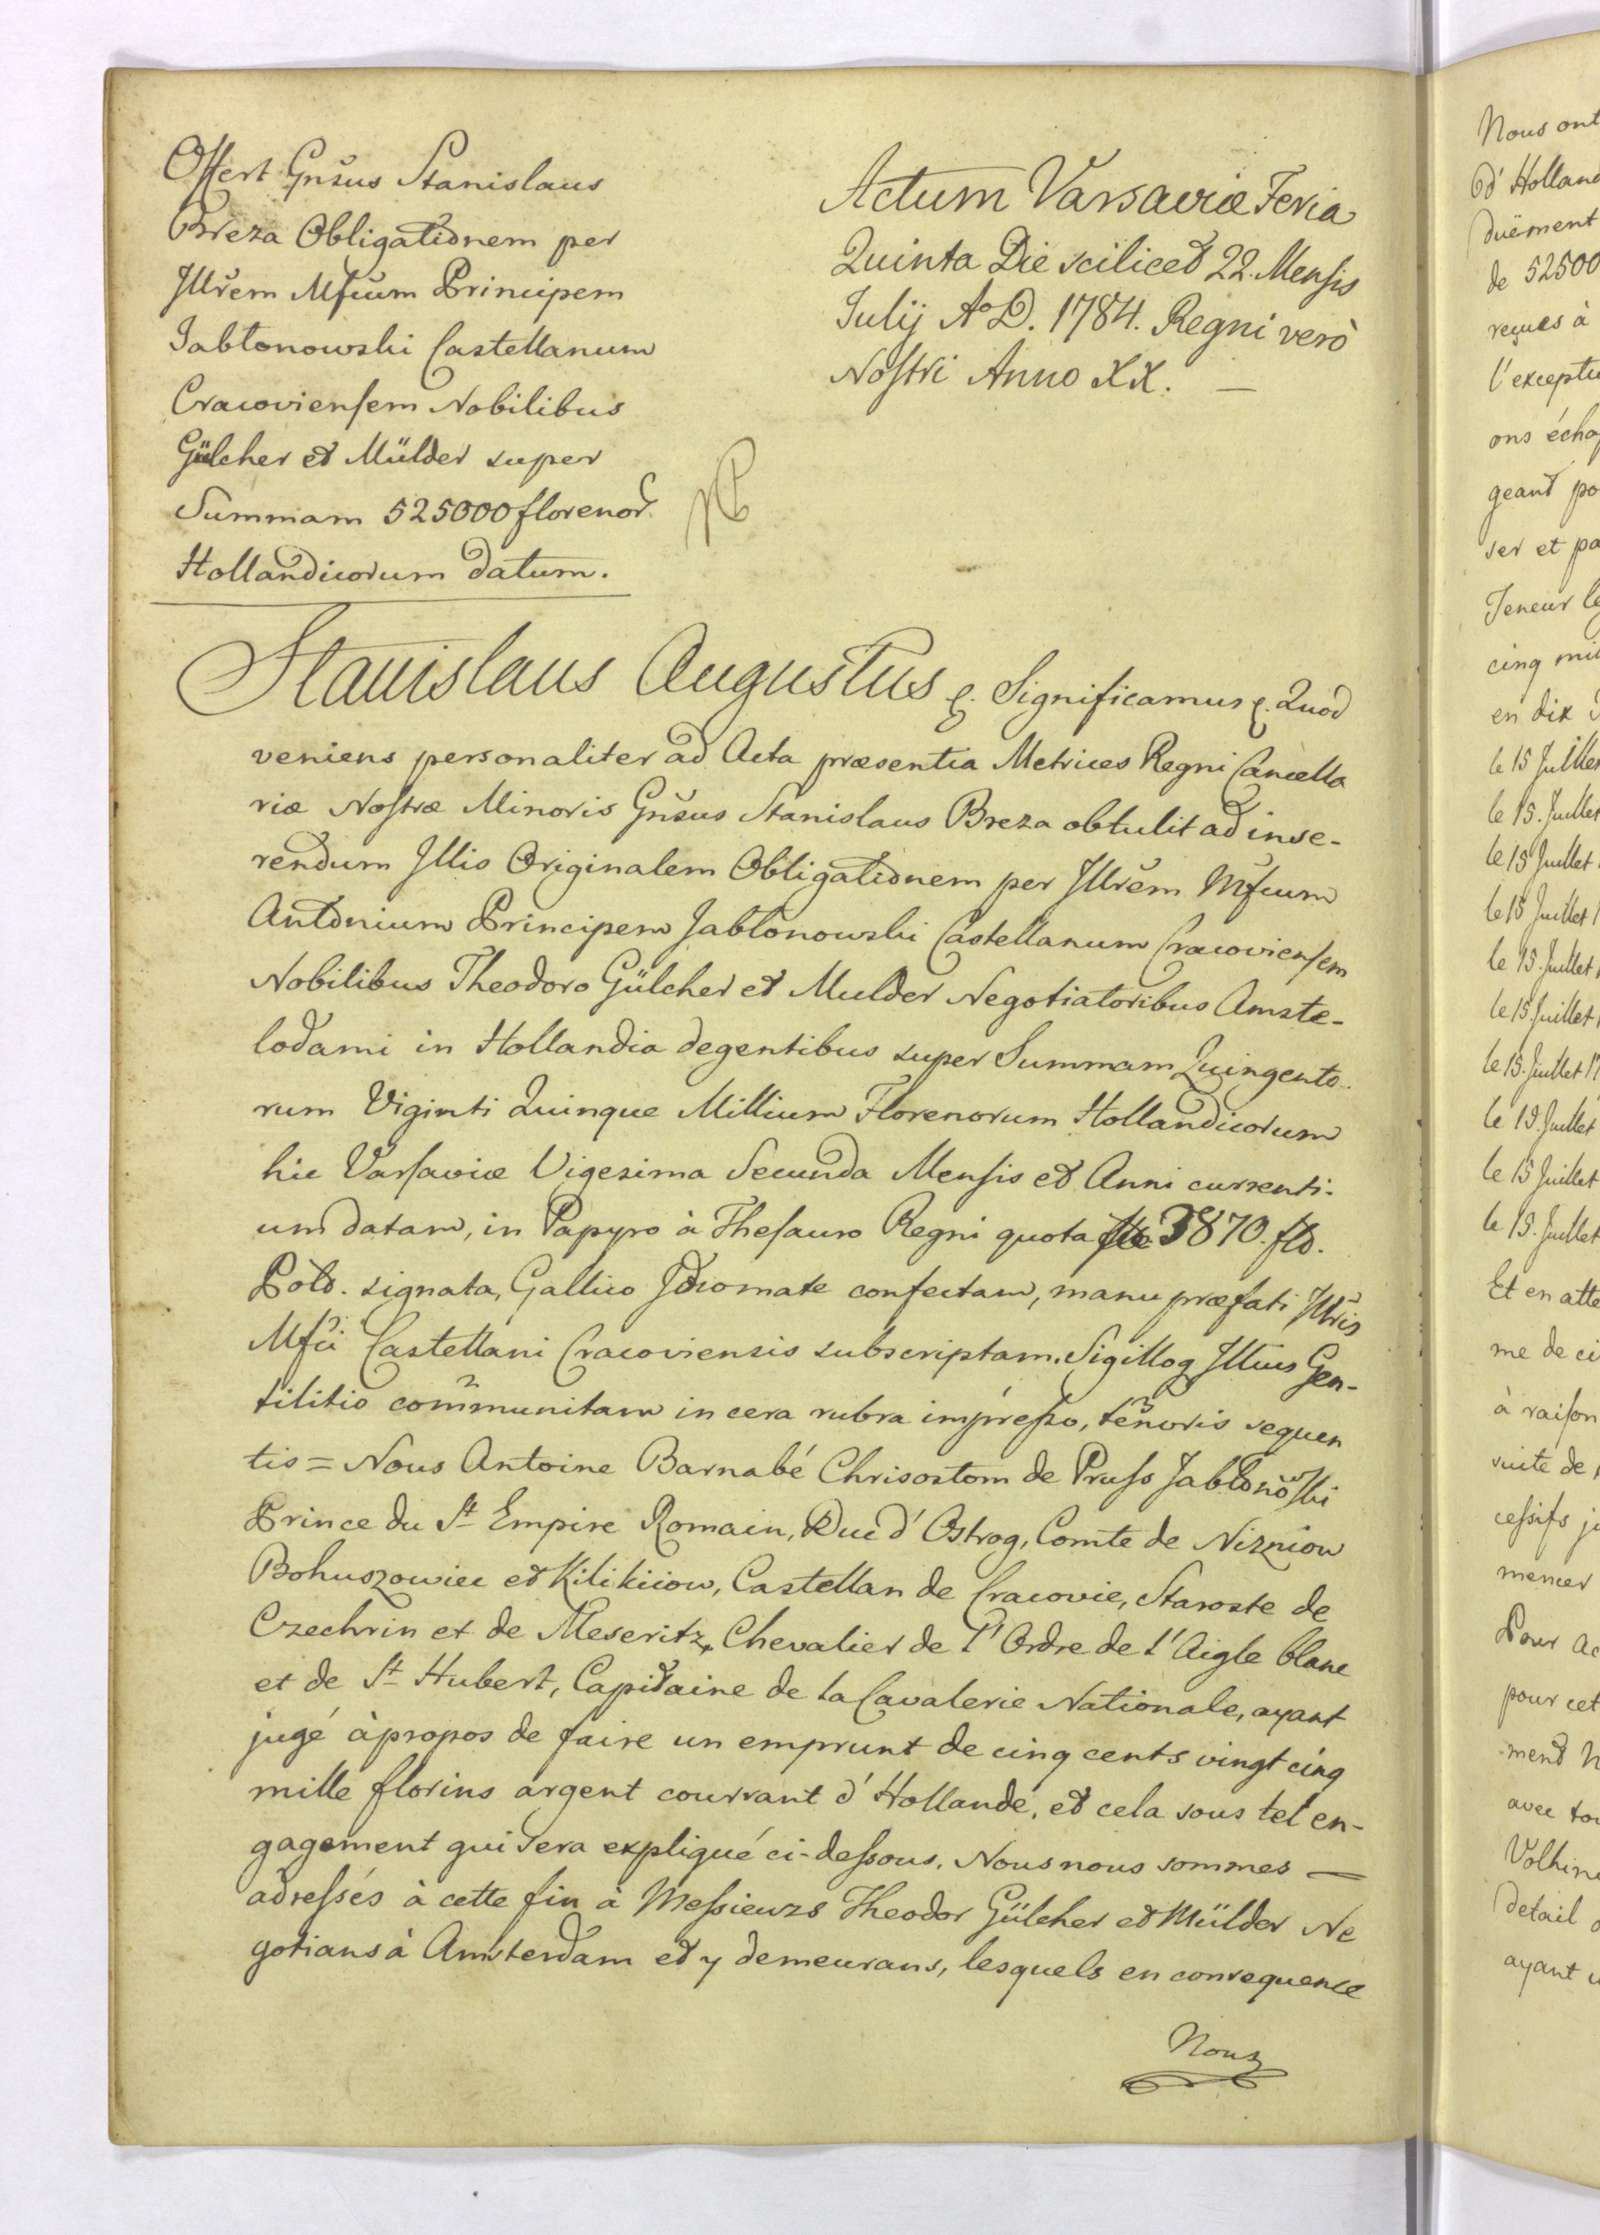 Offert Gnsus Stanislaus
Breza Obligationem per
Jllrem Mfcum Principem
Jabłonowski Castellanum
Cracoviensem Nobilibus
Gülcher et Mülder super
Summam 525000 florenor.
Hollandicorum datum.
Actum Varsaviæ Feria
Quinta Die scilicet 22. Mensis
Julij A.o D. 1784. Regni verò
Nostri Anno XX. —
Stanislaus Augustus Significamus Quod
veniens personaliter ad Acta præsentia Metrices Regni Cancella
riæ Nostræ Minoris Gnsus Stanislaus Breza obtulit ad inse-
rendum Jllis Originalem Obligationem per Jllrem Mfcum
Antonium Principem Jabłonowski Castellanum Cracoviensem
Nobilibus Theodoro Gülcher et Mulder Negotiatoribus Amste-
lodami in Hollandia degentibus super Summam Quingento-
rum Viginti Quinque Millium Florenorum Hollandicorum
hic Varsaviæ Vigesima Secunda Mensis et Anni currenti-
um datam, in Papyro à Thesauro Regni quota 3870. flo.
Polo. signata, Gallico Jdiomate confectam, manu præfati Jllris
Mfci Castellani Cracoviensis subscriptam. Sigilloq Jllius Gen-
tilitio communitam in cera rubra impresso, tenoris sequen
tis = Nous Antoine Barnabé Chrisostom de Pruss Jabłonowski
Prince du St Empire Romain, Duc d'Ostrog, Comte de Nizniow
Bohuszowiec et Kilikiiow, Castellan de Cracovie, Staroste de
Czechrin et de Meseritz, Chevalier de l'Ordre de l'Aigle blanc
et de St Hubert, Capitaine de la Cavalerie Nationale, ayant
jugé àpropos de faire un emprunt de cinq cents vingt cinq
mille florins argent courrant d'Hollande, et cela sous tel en-
gagement qui sera expliqué ci-dessous. Nous nous sommes —
adressés à cette fin à Messieurs Theodor Gülcher et Mülder Ne
gotians à Amsterdam et y demeurans, lesquels en consequence
Nous
Nous ont
d'Holland
duëment
de 52500
reçues à
l'exceptio
ons écha
geant po
ser et pa
Teneur le
cinq mil
en dix
le 15 Juillet
le 15. Juillet
le 15 Juillet
le 15 Juillet
le 15. Juillet
le 15 Juillet
le 15. Juillet 17
le 15. Juillet
le 15 Juillet
le 15. Juillet
Et en atte
me de ci
à raison
suite de
cessifs j
mencer
Pour ac
pour cet
ment N
avec tou
Volhin
detail
ayant